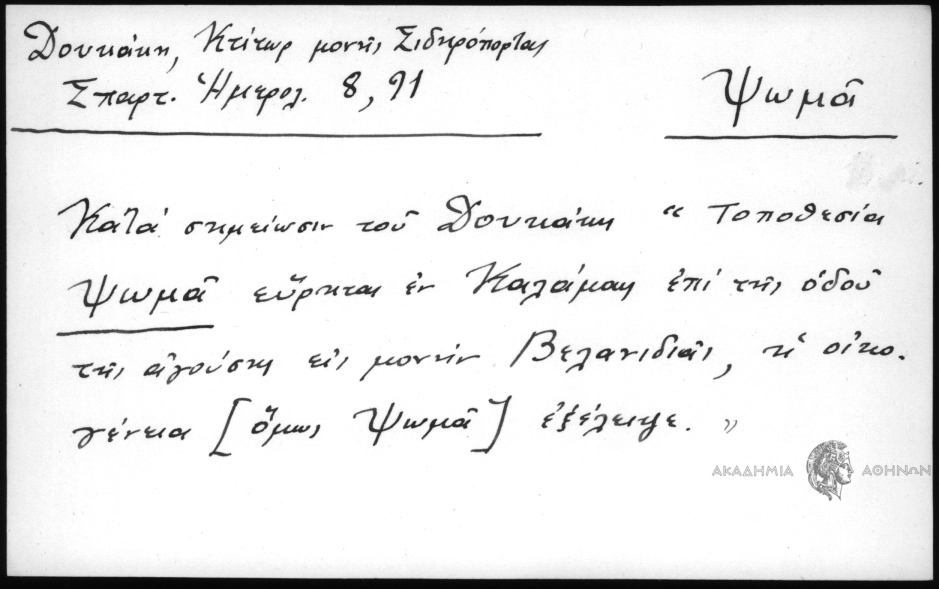 Δουκάκη, Κτίτωρ μονῆς Σιδηρόπορτας
Σπαρτ. Ἡμερολ. 8, 91
Ψωμᾶ
Κατά σημείωσιν τοῦ Δουκάκη “ Τοποθεσία
Ψωμᾶ εὕρηται ἐν Καλάμαις ἐπί τῆς ὁδοῦ
τῆς ἀγούσης εἰς μονήν Βελανιδιᾶς, ἡ οἰκο.
γένεια [ὅμως Ψωμᾶ] ἐξέλειψε. ”
ΑΚΑΔΗΜΙΑ ΑΘΗΝΩΝ